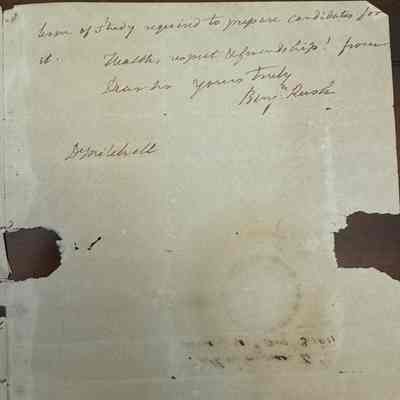 term of study required to prepare candidates for
it. Health, respect & friendship! from
Dear Sir yours truly
Benjn. Rush
Dr Mitchell